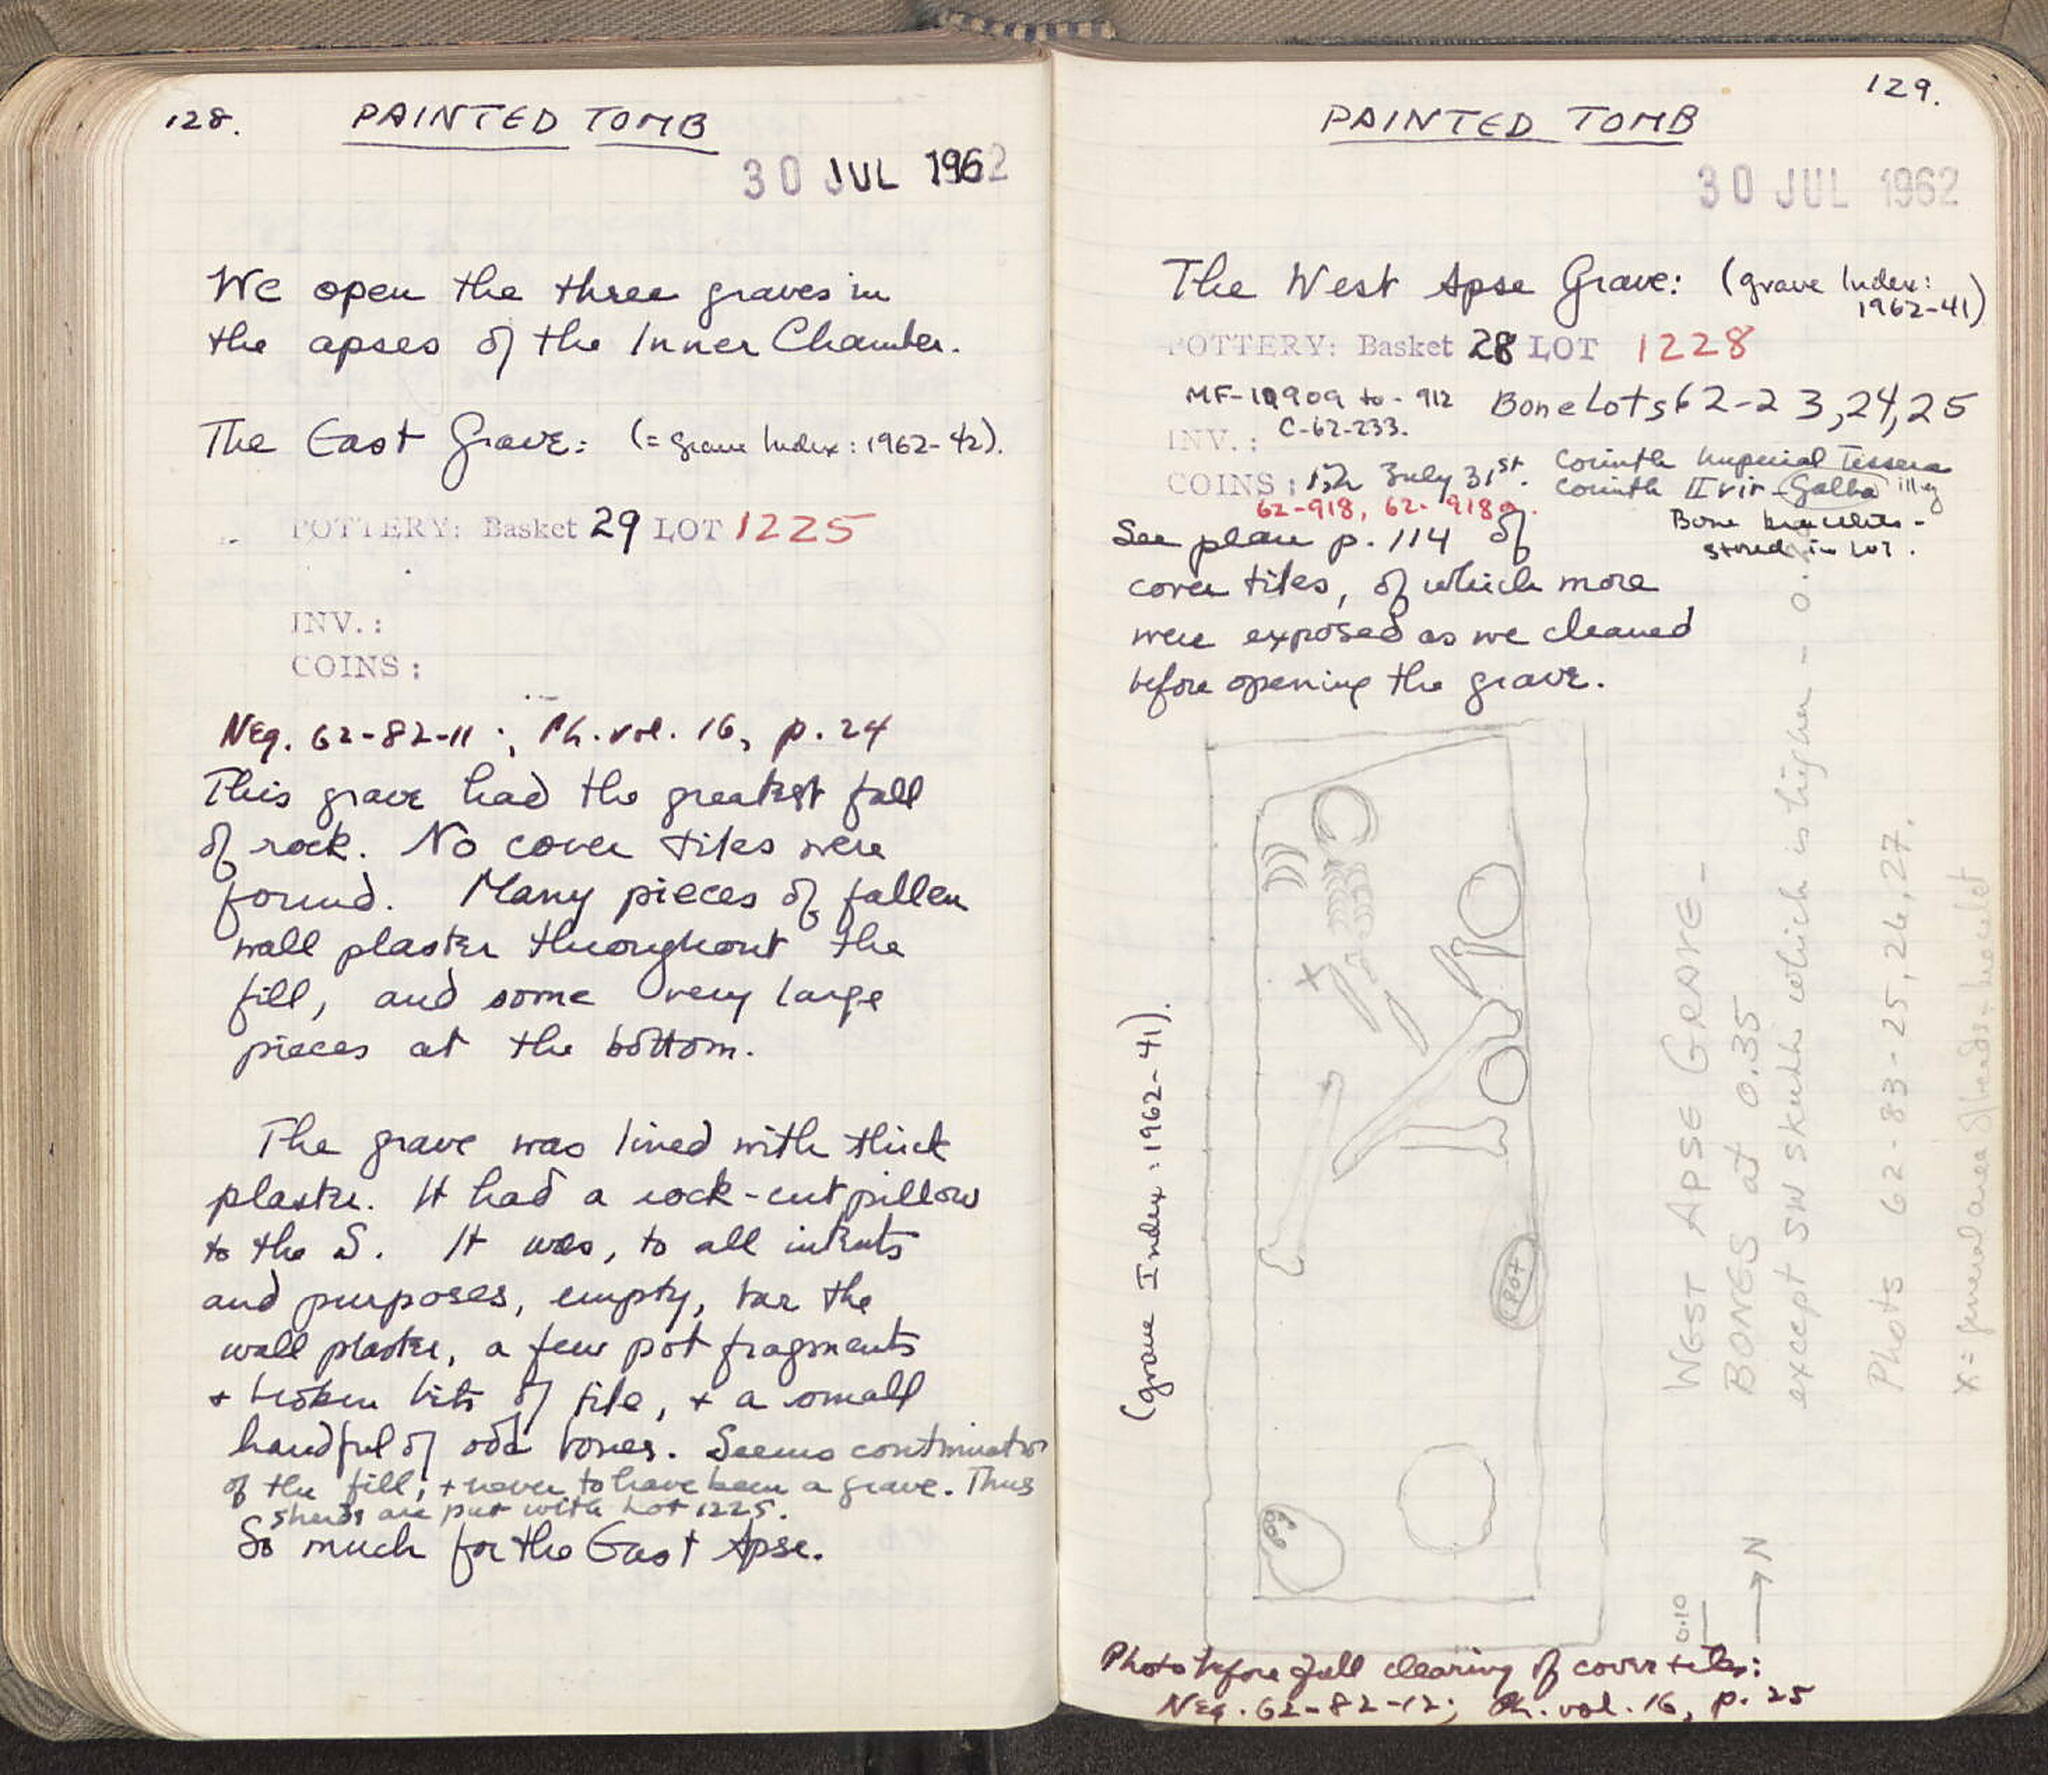 128.
PAINTED TOMB
30 JUL 1962
We open the three graves in
the apses of the Inner Chamber.
The East Grave: (= Grave Index: 1962-42).
POTTERY: Basket 29 LOT 1225
INV.:
COINS:
Neg. 62-82-11; Ph. vol. 16, p. 24
This grave had the greatest fall
of rock. No cover tiles were
found. Many pieces of fallen
wall plaster throughout the
fill, and some very large
pieces at the bottom.
The grave was lined with thick
plaster. It had a rock-cut pillow
to the S. It was, to all intents
and purposes, empty, bar the
wall plaster, a few pot fragments
+ broken bits of tile, + a small
handful of odd bones. Seems continuation
of the fill, + never to have been a grave. Thus
sherds are put with Lot 1225.
So much for the East Apse.
129.
PAINTED TOMB
30 JUL 1962
The West Apse Grave: (grave Index:
1962-41)
POTTERY: Basket 28 LOT 1228
MF-10909 to -912 Bone Lots 62-23, 24, 25
INV.: C-62-233.
COINS: July 31st. Corinth Imperial Tessera
Corinth IIvir - Galba illeg
62-918, 62-918a.
Bone bracelets -
stored in lot.
See plan p. 114 of
cover tiles, of which more
were exposed as we cleaned
before opening the grave.
(grave Index: 1962-41).
X
Pot
WEST APSE GRAVE -
BONES at 0.35
except SW skull which is higher - 0.
Photos 62-83-25, 26, 27.
X = general area of beads + bracelet
0.10
N
Photo before full clearing of cover tiles:
Neg. 62-82-12; Ph. vol. 16, p. 25